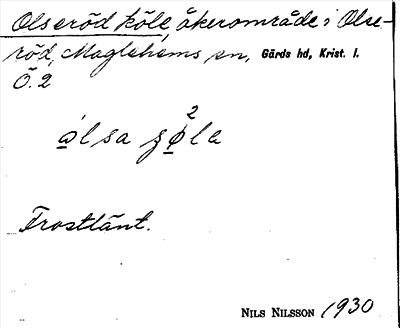 Olseröd köle, åkerområde i Olse-
röd, Maglehems sn, Gärds hd, Krist. l.
Ö. 2
ølsa
Frostlänt.
NILS NILSSON 1930